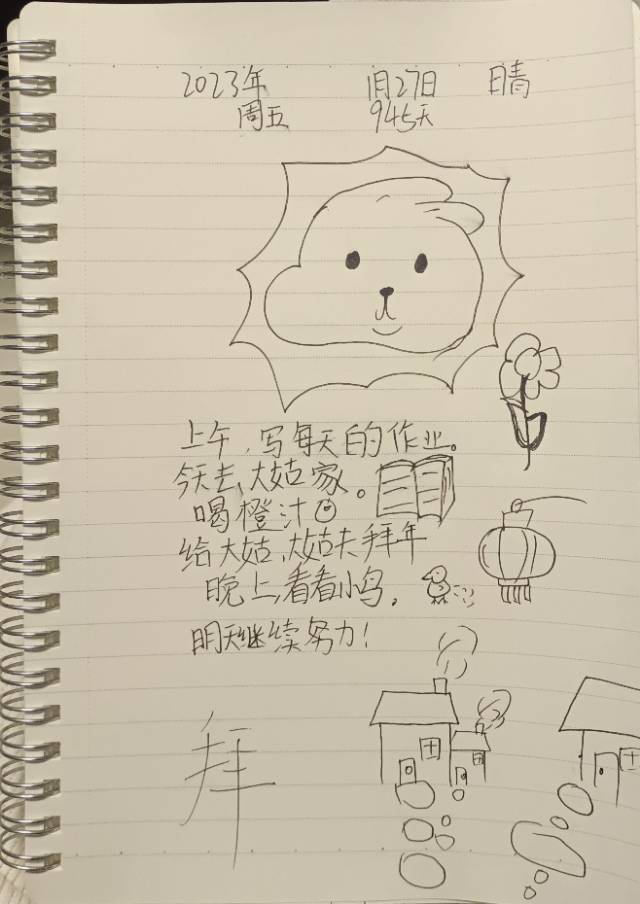 2023年 1月27日 晴
周五 945天
上午,写每天的作业。
今天去、大姑家。
喝橙汁
给大姑、大姑夫拜年
晚上,看看小鸟,
明天继续努力!
拜